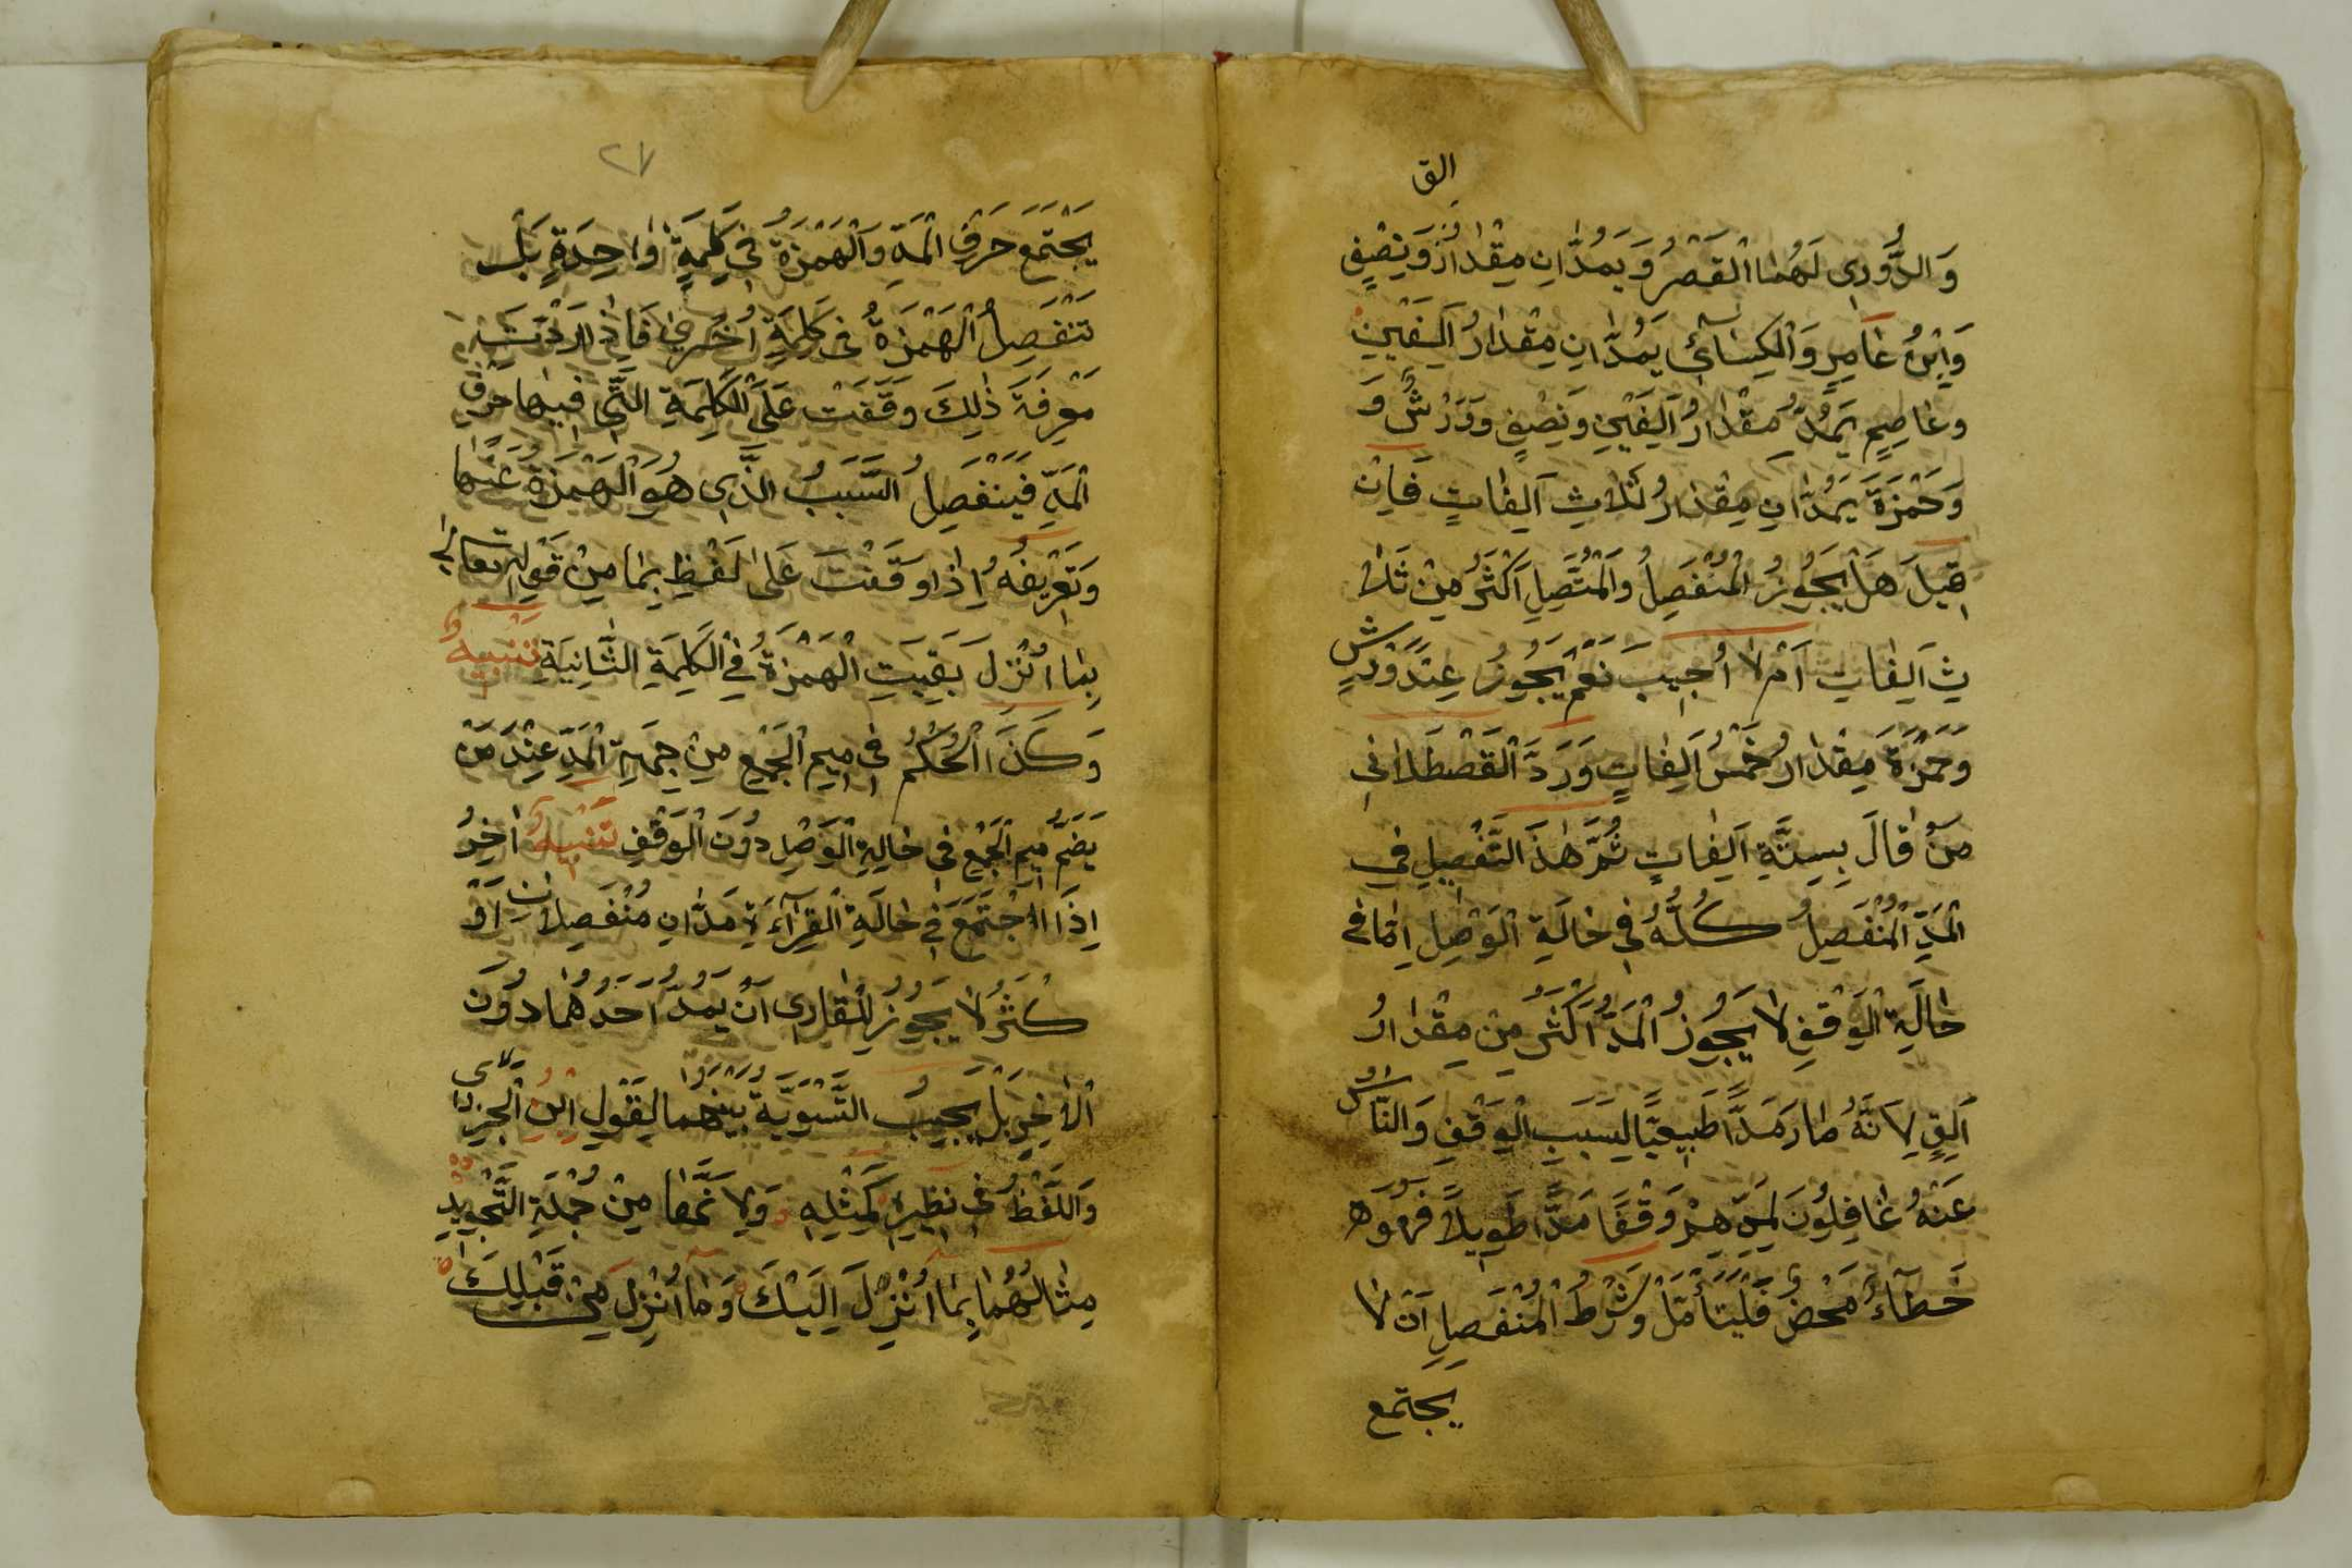 الق
وَالدُّورِى لَهُمَا الْقَصْرُ وَيَمُدَّانِ مِقْدَارُ وَنِصْفٍ
وَابْنُ عَامِرٍ وَالْكِسَائِي يَمُدَّانِ مِقْدَارُ اَلِفَيْنِ
وعَاصِمٍ يَمُدُّ مِقْدَارُ اَلِفَيْنِ وَنِصْفٍ وَوَرْشُ وَ
وَحَمْزَةَ يَمُدَّانِ مِقْدَارُ ثَلَاثِ اَلِفَاتٍ فَاِنْ
قِيلَ هَلْ يَجُوزُ الْمُنْفَصِلُ وَالْمُتَّصِلِ اَكْثَرُ مِنْ ثَلَا
ثِ اَلِفَاتٍ اَمْ لَا اُجِيبَ نَعَمْ يَجُوزُ عِنْدَ وَرْشٍ
وَحَمْزَةَ مِقْدَارُ خَمْسُ اَلِفَاتٍ وَرَدَّ الْقَصْطَلَانِى
مَنْ قَالَ بِسِتَّةِ اَلِفَاتٍ ثُمَّ هٰذَ التَّفْصِيلِ فِى
الْمَدِّ الْمُنْفَصِلُ كُلُّهُ فِى حَالَةِ الْوَصْلِ اِمَّا فِى
حَالَةِ الْوَقْفِ لَا يَجُوزُ الْمَدُّ اَكْثَرَ مِنْ مِقْدَارُ
اَلِفٍ لِاَنَّهُ صَارَ مَدًّا طَبِيعِيًّا لِسَبَبِ الْوَقْفِ وَالنَّاسُ
عَنْهُ غَافِلُونَ لِمَدِّهِمْ وَقْفًا مَدًّا طَوِيلًا فَهُوَ
خَطَآءٌ مَحْضٌ فَلْيَتَأَمَّلْ وَشَرْطُ الْمُنْفَصِلِ اَنْ لَا
يجتمع
٢٧
يَجْتَمِعَ حَرْفُ الْمَدِّ وَالْهَمْزَةُ فِى كَلِمَةٍ وَاحِدَةٍ بَلْ
تَنْفَصِلُ الْهَمْزَةُ فِى كَلِمَةِ اُخْرٰى فَاِذَا اَرَدْتَ
مَعْرِفَةَ ذٰلِكَ وَقَفْتَ عَلَى الْكَلِمَةِ الَّتِى فِيهَا حَرْفُ
الْمَدِّ فَيَنْفَصِلُ السَّبَبُ الَّذِى هُوَ الْهَمْزَةُ عَنْهَا
وَتَعْرِيفُهُ اِذَا وَقَفْتَ عَلٰى لَفْظِ بِمَا مِنْ قَوْلِهِ تعالى
بِمَا اُنْزِلَ بَقِيَتِ الْهَمْزَةُ فِى الْكَلِمَةِ الثَّانِيَةِ تنبيه
وَكَذَا الْحُكْمُ فِى مِيمِ الْجَمْعِ مِنْ جِهَةِ الْمَدِّ عِنْدَ مَنْ
يَضُمُّ مِيمَ الْجَمْعِ فِى حَالِةِ الْوَصْلِ دُونَ الْوَقْفِ تَنْبِيهٌ اٰخِرُ
اِذَا اجْتَمَعَ فِى حَالَةِ الْقِرَآءَةِ مَدَّانِ مُنْفَصِلَانِ اَوْ
كْثَرُ لَا يَجُوزُ لِلْقَارِى اَنْ يَمُدَّ اَحَدُهُمَا دُونَ
الْاٰخِرِ بَلْ يَجِبُ التَّسْوِيَّةُ بَيْنَهُمَا لِقَوْلِ ابْنُ الْجَزَرِى
وَاللَّفْظُ فِى نَظِيرِهِ كَمِثْلِهِ وَلَا سَمَّا مِنْ جُمْلَةِ التَّجْوِيدِ
مِثَالُهُمَا بِمَا اُنْزِلَ اِلَيْكَ وَمَا اُنْزِلَ مِنْ قَبْلِكَ